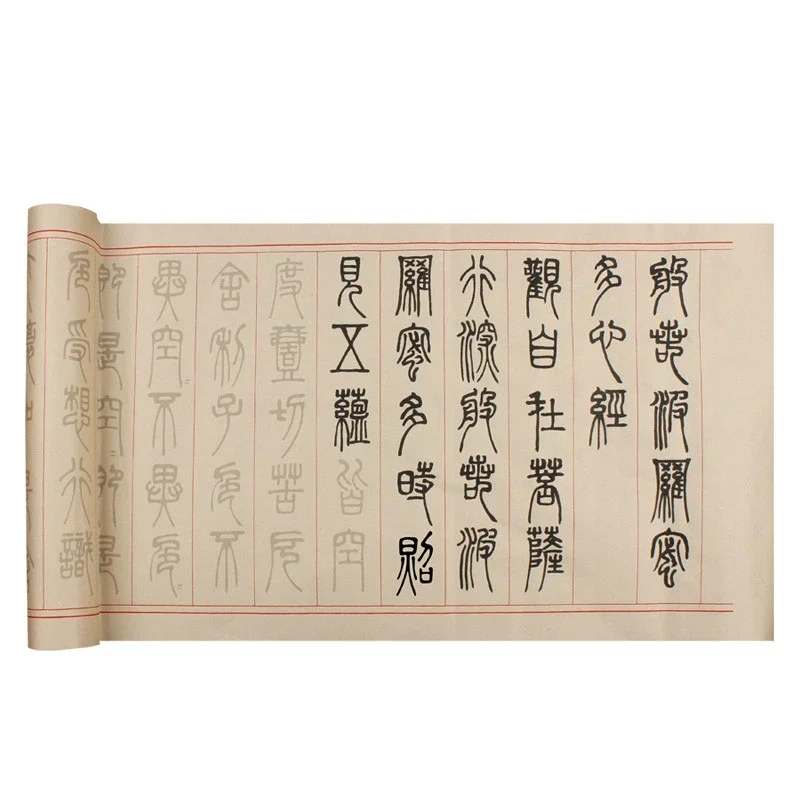 般若波羅蜜
多心經
觀自在菩薩
行深般若波
羅蜜多時照
見五蘊皆空
度壹切苦厄
舍利子色不
異空〻不異色〻
即是空即是
色受想行識